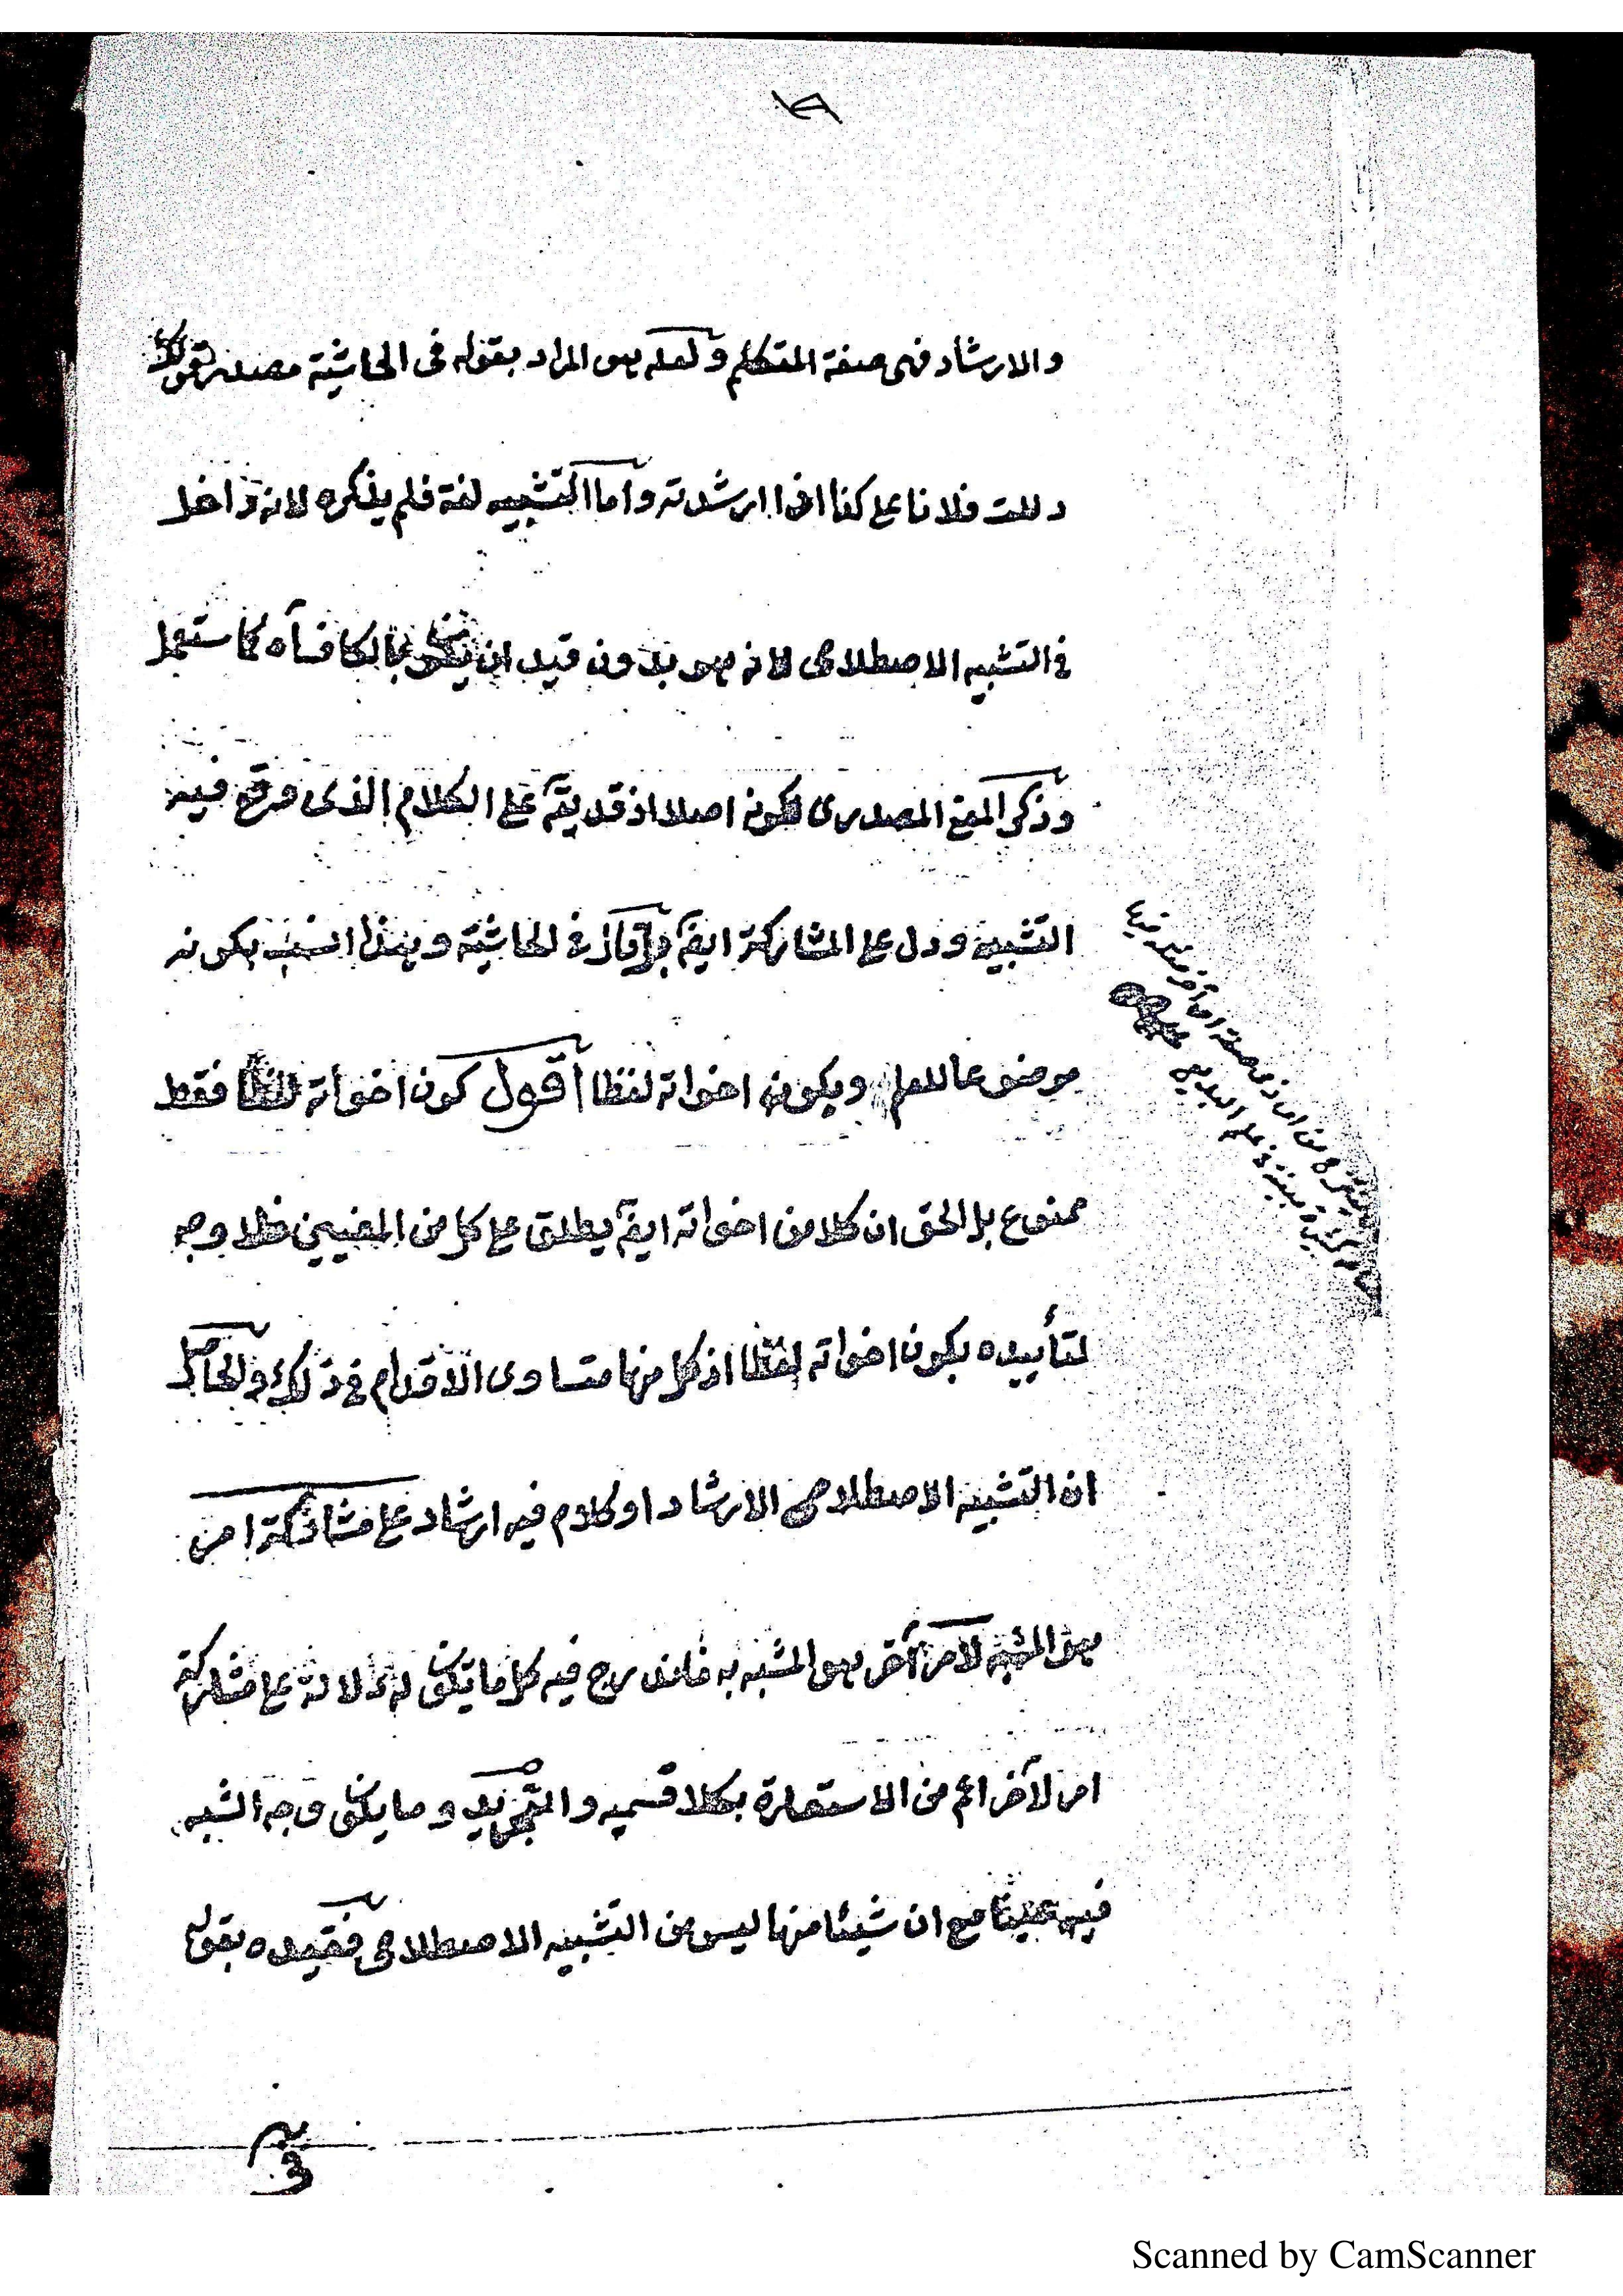 والارشاد فهى صفة المتكلم ولعله هو المراد بقوله فى الحاشية مصدر قولك
دللت فلانا على كذا اذا ارشدته واما التشبيه لغة فلم يذكره لانه داخل
فى التشبيه الاصطلاحى لانه هو بدون قيد ان يكون بالكاف
وذكر المعنى المصدرى لكونه اصلا اذ قد يق على الكلام الذى وقع فيه
التشبيه ودل على المشاركة ايض فى الحاشية وهذا انسب بكونه
موضوعا للعلم وبكون اخواته لفظا اقول كون اخواته لفظا فقط
ممنوع بل الحق ان كلا من اخواته ايض يطلق على كل من المعنيين فلا وجه
لتأييده بكون اخواته لفظا اذ كل منها متساوى الاقدام فى ذلك والحاصل
ان التشبيه الاصطلاحى الارشاد او كلام فيه ارشاد على مشاركة امر
هو المشبه لامر آخر هو المشبه به فاندرج فيه كل ما يكون له دلالة على مشاركة
امر لآخر اعم من الاستعارة بكلا قسميه والتجريد وما يكون وجه الشبه
فيه مع ان شيئا منها ليس من التشبيه الاصطلاحى فقيده بقوله
Scanned by CamScanner